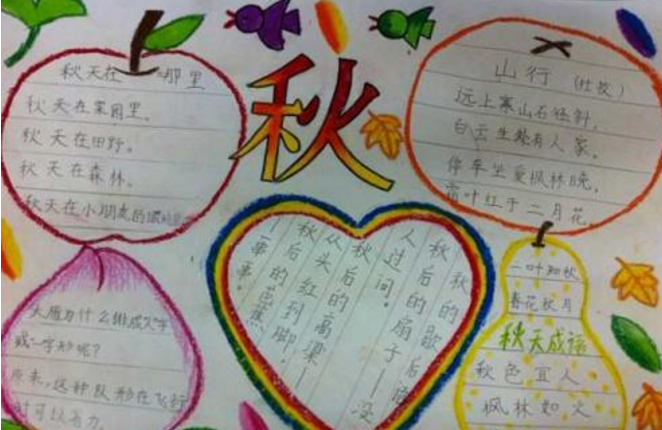 秋天在哪里
秋天在菜园里。
秋天在田野。
秋天在森林。
秋天在小朋友的
秋
山行（杜牧）
远上寒山石径斜，
白云生处有人家，
停车坐爱枫林晚，
霜叶红于二月花。
秋的歇后语
秋后的扇子—没
人过问。
秋后的高粱—
从头红到脚。
秋后的芭蕉—
一串串。
大雁为什么排成人字
或一字形呢？
原来，这种队形在飞行
时可以省力。
一叶知秋
春花秋月
秋天成语
秋色宜人
枫林如火